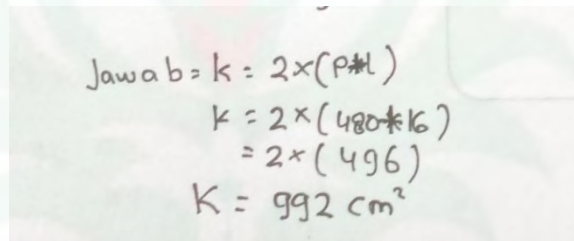 Jawab = k = 2×(P+l)
k = 2×(480+16)
= 2×(496)
K = 992 cm²